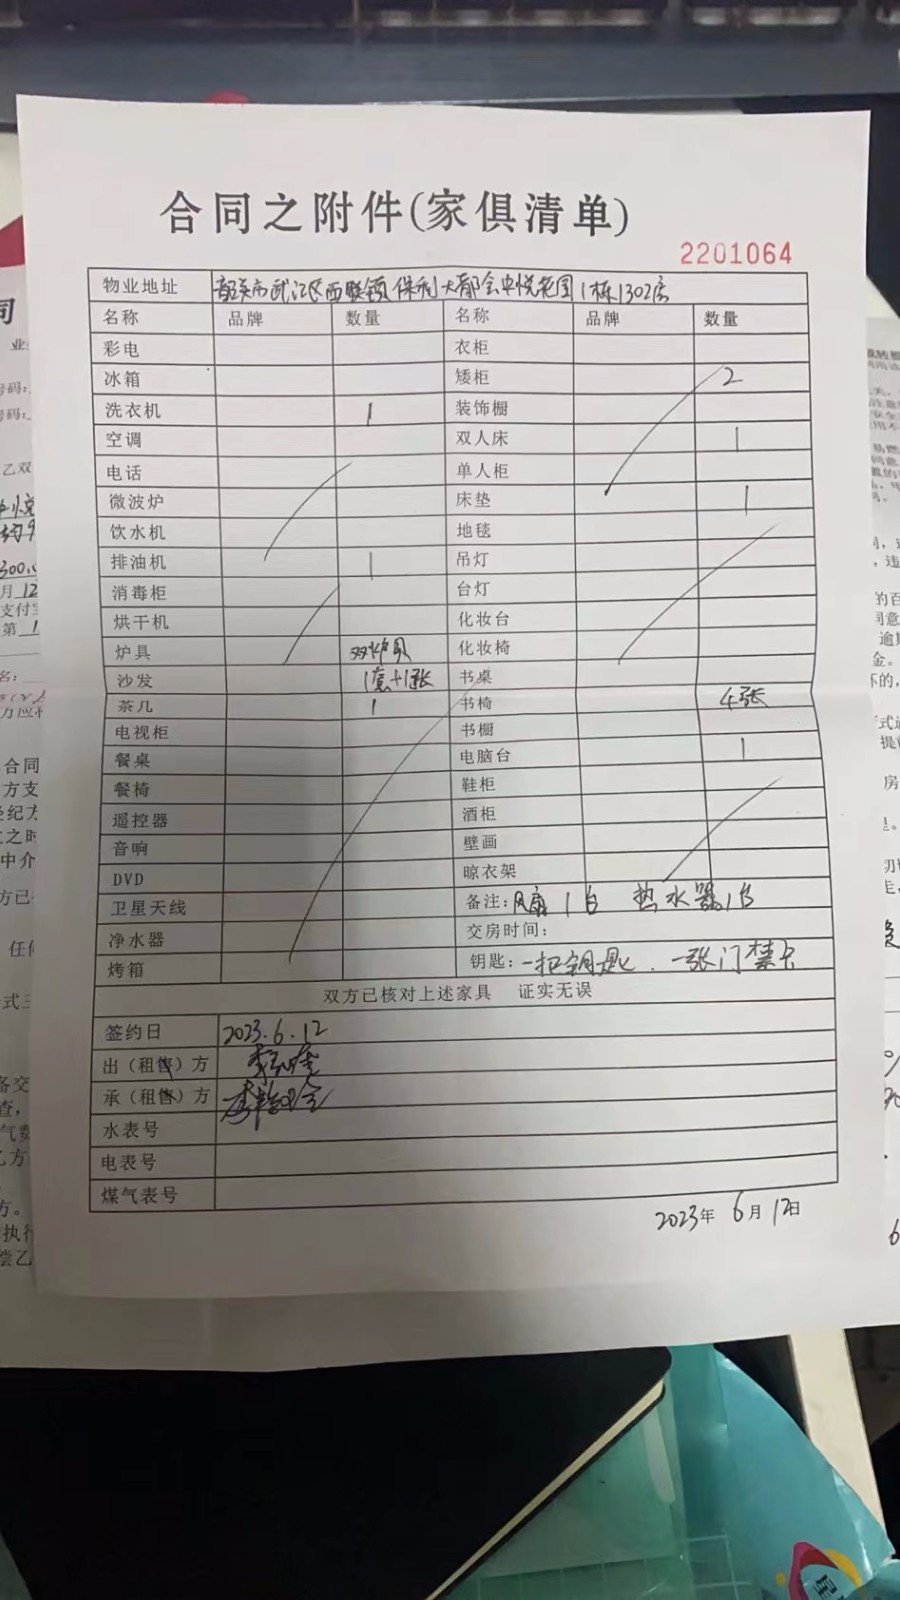 合同之附件(家俱清单)
2201064
物业地址 韶关市武江区西联镇保利大都会中悦花园1栋1302房
名称 品牌 数量 名称 品牌 数量
彩电 衣柜
冰箱 矮柜 2
洗衣机 1 装饰橱
空调 双人床 1
电话 单人柜
微波炉 床垫 1
饮水机 地毯
排油机 1 吊灯
消毒柜 台灯
烘干机 化妆台
炉具 双炉具 化妆椅
沙发 1套+1张 书桌
茶几 1 书椅 4张
电视柜 书橱
餐桌 电脑台 1
餐椅 鞋柜
遥控器 酒柜
音响 壁画
DVD 晾衣架
卫星天线 备注: 风扇1台 热水器1台
净水器 交房时间:
烤箱 钥匙: 一把钥匙、一张门禁卡
双方已核对上述家具 证实无误
签约日 2023.6.12
出（租售）方
承（租售）方
水表号
电表号
煤气表号
2023年6月12日